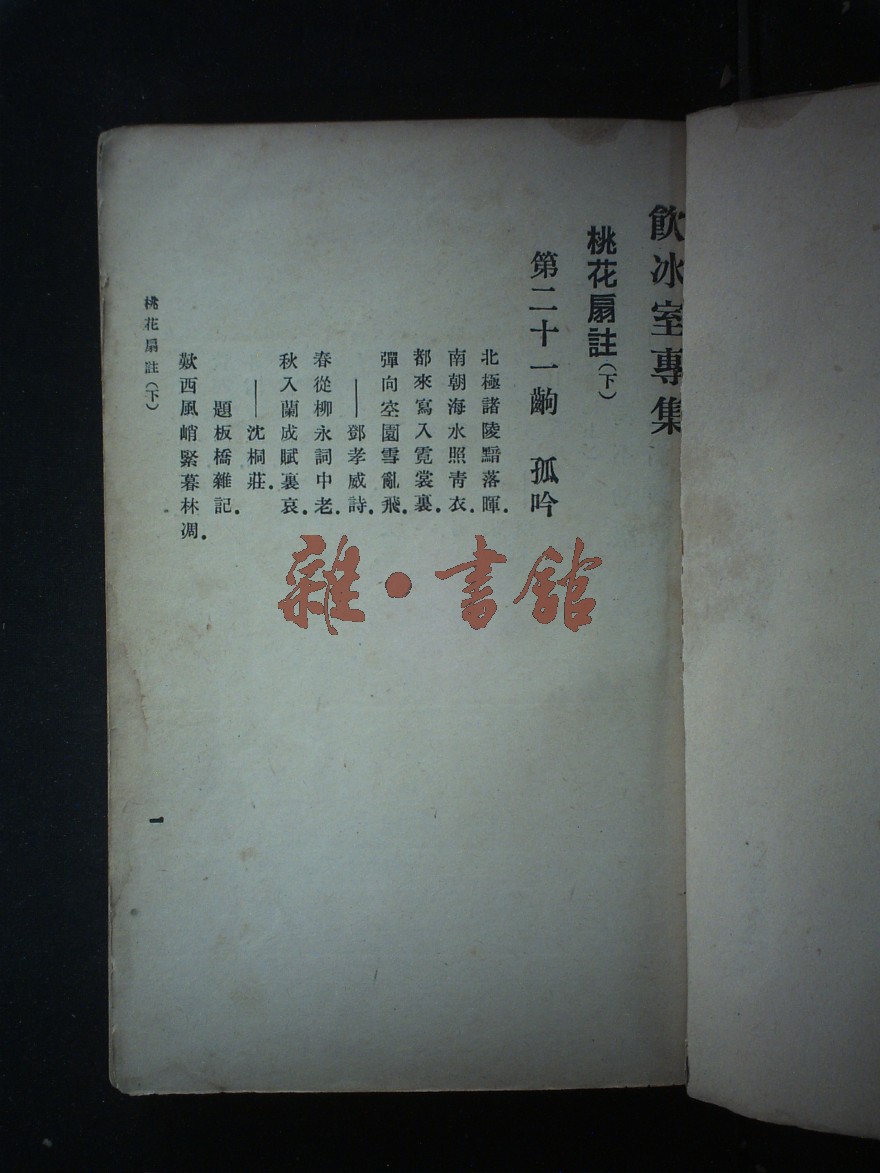 飲冰室專集
桃花扇註(下)
第二十一齣 孤吟
北極諸陵黯落暉.
南朝海水照青衣.
都來寫入霓裳裏.
彈向空園雪亂飛.
——鄧孝威詩.
春從柳永詞中老.
秋入蘭成賦裏哀.
——沈桐莊.
題板橋雜記.
歎西風峭緊暮林凋.
桃花扇註(下)
一
雜·書館